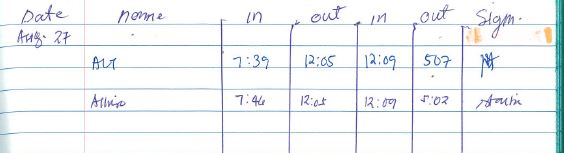 Date name in out in out Sign.
Aug. 27
ALT 7:39 12:05 12:09 507
7:46 12:05 12:09 5:02